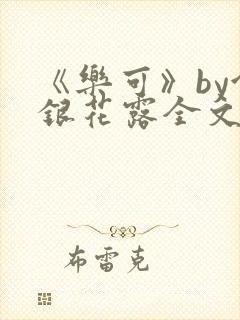 《樂可》by
銀花露全文
布雷克